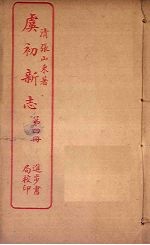 清張山來著
虞初新志 第四冊
進步書
局校印